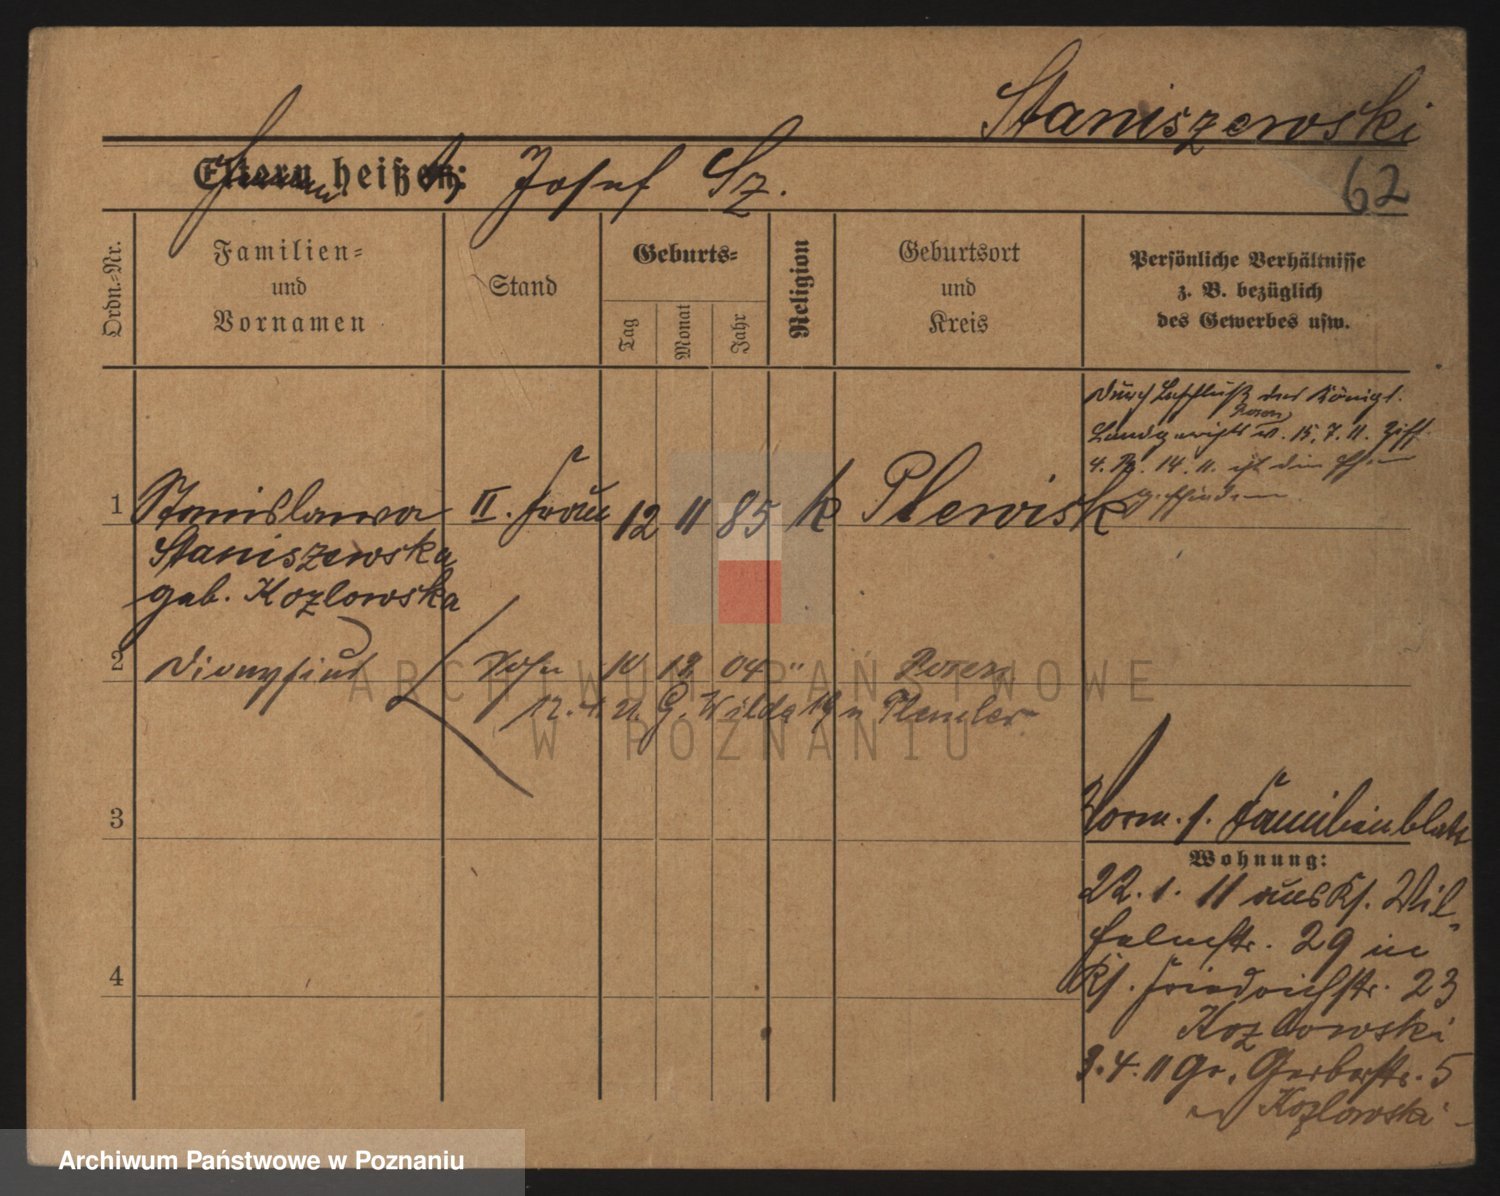 Staniszewski
Eltern heißen: Josef Sz.
62
Ordn.-Nr.
Familien-
und
Vornamen
Stand
Geburts-
Tag
Monat
Jahr
Religion
Geburtsort
und
Kreis
Persönliche Verhältnisse
z. B. bezüglich
des Gewerbes usw.
Durch Beschluß des Königl.
Posen
Landgerichts v. 15. 7. 11. Ziff.
4. R. 14. 11. ist die Ehe
geschieden
1 Stanislawa II. Frau 12 11 85 k Plewisk
Staniszewska
geb. Kozlowska
2 Dionysius Sohn 10 12 04 " Posen
12. 4. 21. G. Wilda 19
3
Vorm. s. Familienblatt
Wohnung:
22. 1. 11 aus Ks. Wil-
helmstr. 29 in
4
Ks. Friedrichstr. 23
Kozlowski
3. 4. 11 Gr. Gerberstr. 5
Kozlowski
ARCHIWUM PAŃSTWOWE
W POZNANIU
Archiwum Państwowe w Poznaniu